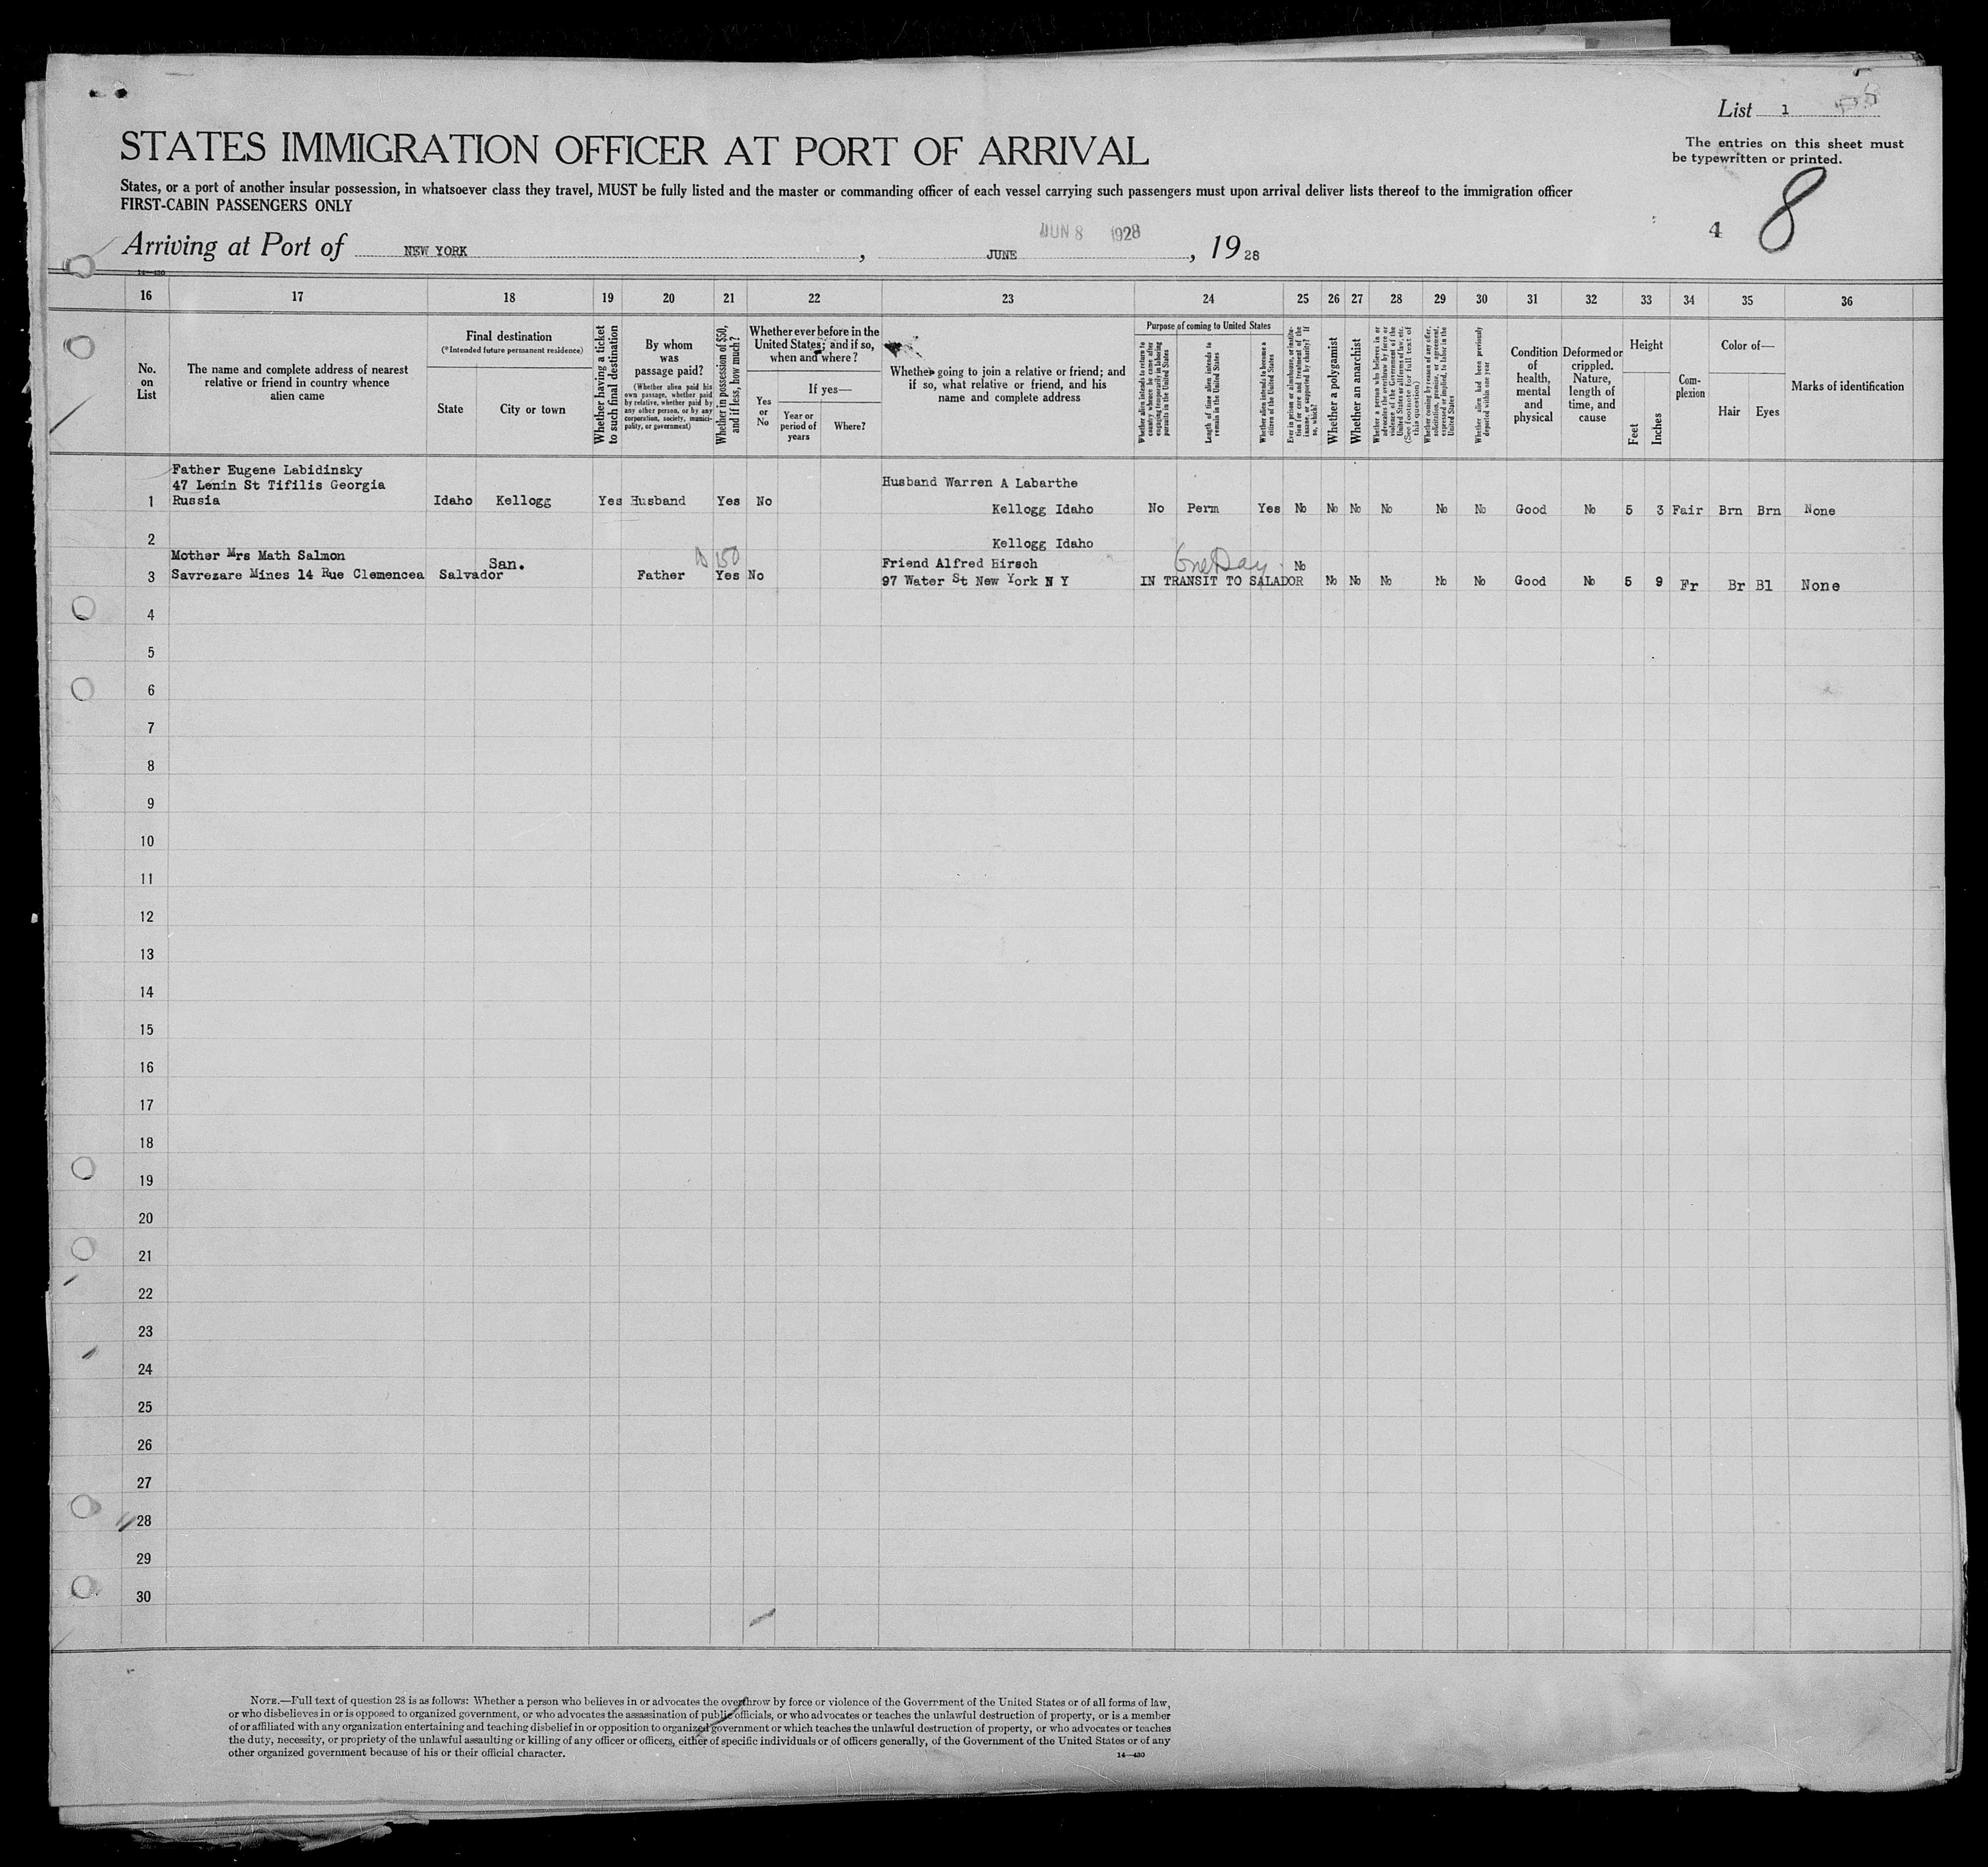 List 1
STATES IMMIGRATION OFFICER AT PORT OF ARRIVAL
The entries on this sheet must
be typewritten or printed.
States, or a port of another insular possession, in whatsoever class they travel, MUST be fully listed and the master or commanding officer of each vessel carrying such passengers must upon arrival deliver lists thereof to the immigration officer
FIRST-CABIN PASSENGERS ONLY
4 8
JUN 8 1928
Arriving at Port of NEW YORK, JUNE, 1928
14—430
16 17 18 19 20 21 22 23 24 25 26 27 28 29 30 31 32 33 34 35 36
No.
on
List
The name and complete address of nearest
relative or friend in country whence
alien came
Final destination
(*Intended future permanent residence)
State
City or town
Whether having a ticket
to such final destination
By whom
was
passage paid?
(Whether alien paid his
own passage, whether paid
by relative, whether paid by
any other person, or by any
corporation, society, munici-
pality, or government)
Whether in possession of $50,
and if less, how much?
Whether ever before in the
United States; and if so,
when and where?
Yes
or
No
If yes—
Year or
period of
years
Where?
Whether going to join a relative or friend; and
if so, what relative or friend, and his
name and complete address
Purpose of coming to United States
Whether alien intends to return to
country whence he came after
engaging temporarily in laboring
pursuits in the United States
Length of time alien intends to
remain in the United States
Whether alien intends to become a
citizen of the United States
Ever in prison or almshouse, or institu-
tion for care and treatment of the
insane, or supported by charity? If
so, which?
Whether a polygamist
Whether an anarchist
Whether a person who believes in or
advocates the overthrow by force or
violence of the Government of the
United States or all forms of law, etc.
(See footnote for full text of
this question)
Whether coming by reason of any offer,
solicitation, promise, or agreement,
expressed or implied, to labor in the
United States
Whether alien had been previously
deported within one year
Condition
of
health,
mental
and
physical
Deformed or
crippled.
Nature,
length of
time, and
cause
Height
Feet
Inches
Com-
plexion
Color of—
Hair
Eyes
Marks of identification
Father Eugene Labidinsky
47 Lenin St Tifilis Georgia
Husband Warren A Labarthe
1 Russia Idaho Kellogg Yes Husband Yes No
Kellogg Idaho No Perm Yes No No No No No No Good No 5 3 Fair Brn Brn None
2 Kellogg Idaho
Mother Mrs Math Salmon San. 150 Friend Alfred Hirsch One Day No
3 Savrezare Mines 14 Rue Clemencea Salvador Father Yes No 97 Water St New York N Y IN TRANSIT TO SALADOR No No No No No Good No 5 9 Fr Br Bl None
4
5
6
7
8
9
10
11
12
13
14
15
16
17
18
19
20
21
22
23
24
25
26
27
28
29
30
NOTE.—Full text of question 28 is as follows: Whether a person who believes in or advocates the overthrow by force or violence of the Government of the United States or of all forms of law,
or who disbelieves in or is opposed to organized government, or who advocates the assassination of public officials, or who advocates or teaches the unlawful destruction of property, or is a member
of or affiliated with any organization entertaining and teaching disbelief in or opposition to organized government or which teaches the unlawful destruction of property, or who advocates or teaches
the duty, necessity, or propriety of the unlawful assaulting or killing of any officer or officers, either of specific individuals or of officers generally, of the Government of the United States or of any
other organized government because of his or their official character.
14—430